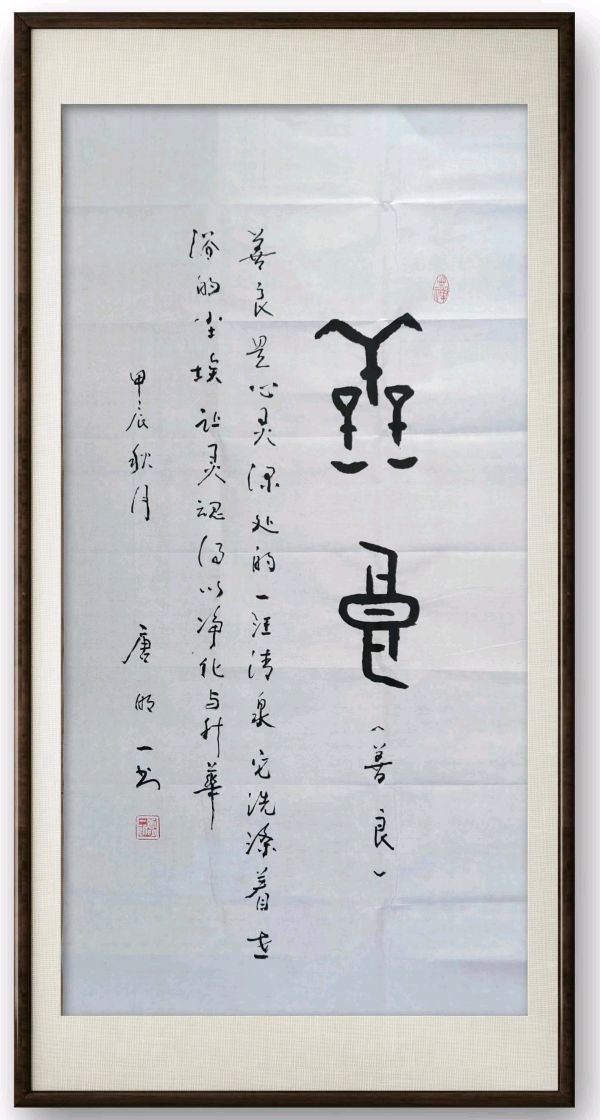 善良
（善良）
善良是心灵深处的一汪清泉它洗涤着世
俗的尘埃让灵魂得以净化与升华
甲辰秋月
唐明一书